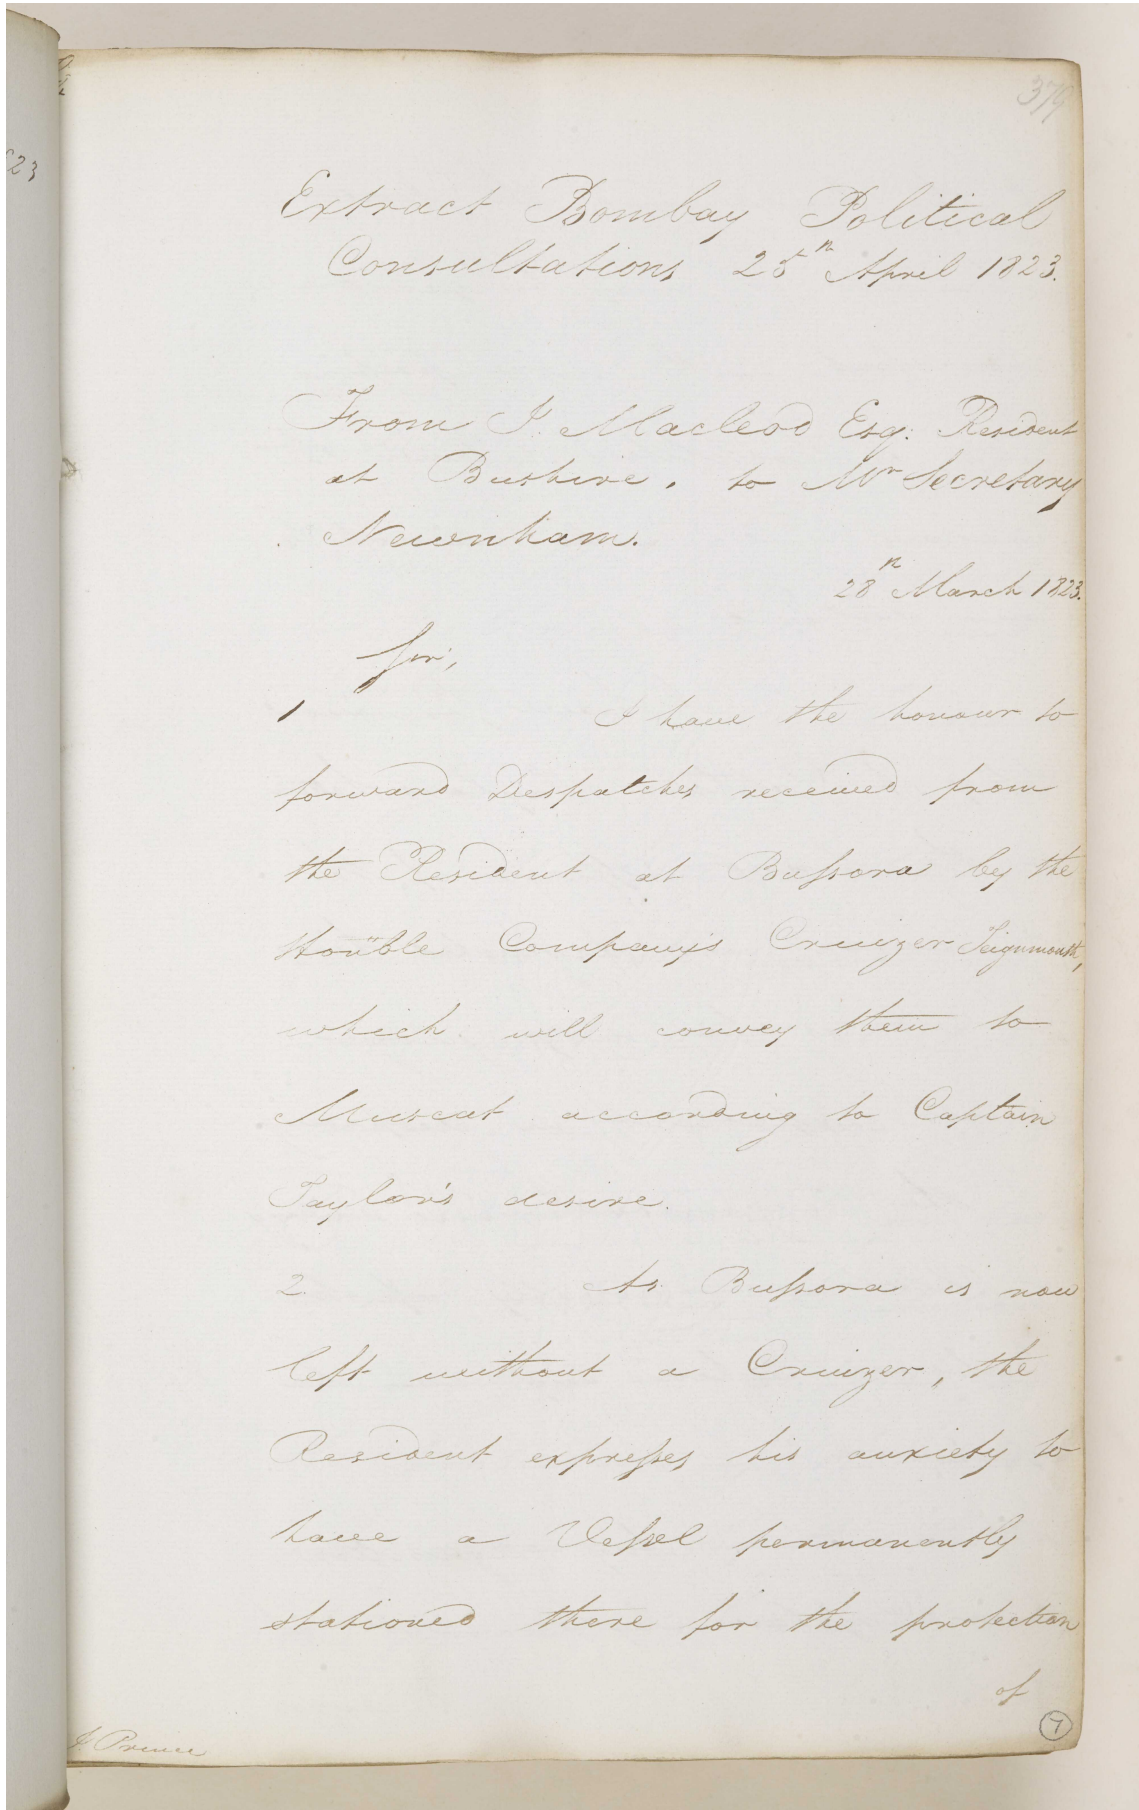 379
Extract Bombay Political
Consultations 25th April 1823.
From J. Macleod Esq: Resident
at Bushire, to Mr Secretary
Newnham.
28th March 1823.
Sir,
1 I have the honour to
forward Despatches received from
the Resident at Bussora by the
Honble Company's Cruizer Teignmouth,
which will convey them to
Muscat according to Captain
Taylor's desire.
2. As Bussora is now
left without a Cruizer, the
Resident expresses his anxiety to
have a Vessel permanently
stationed there for the protection
of
7
J. Prince